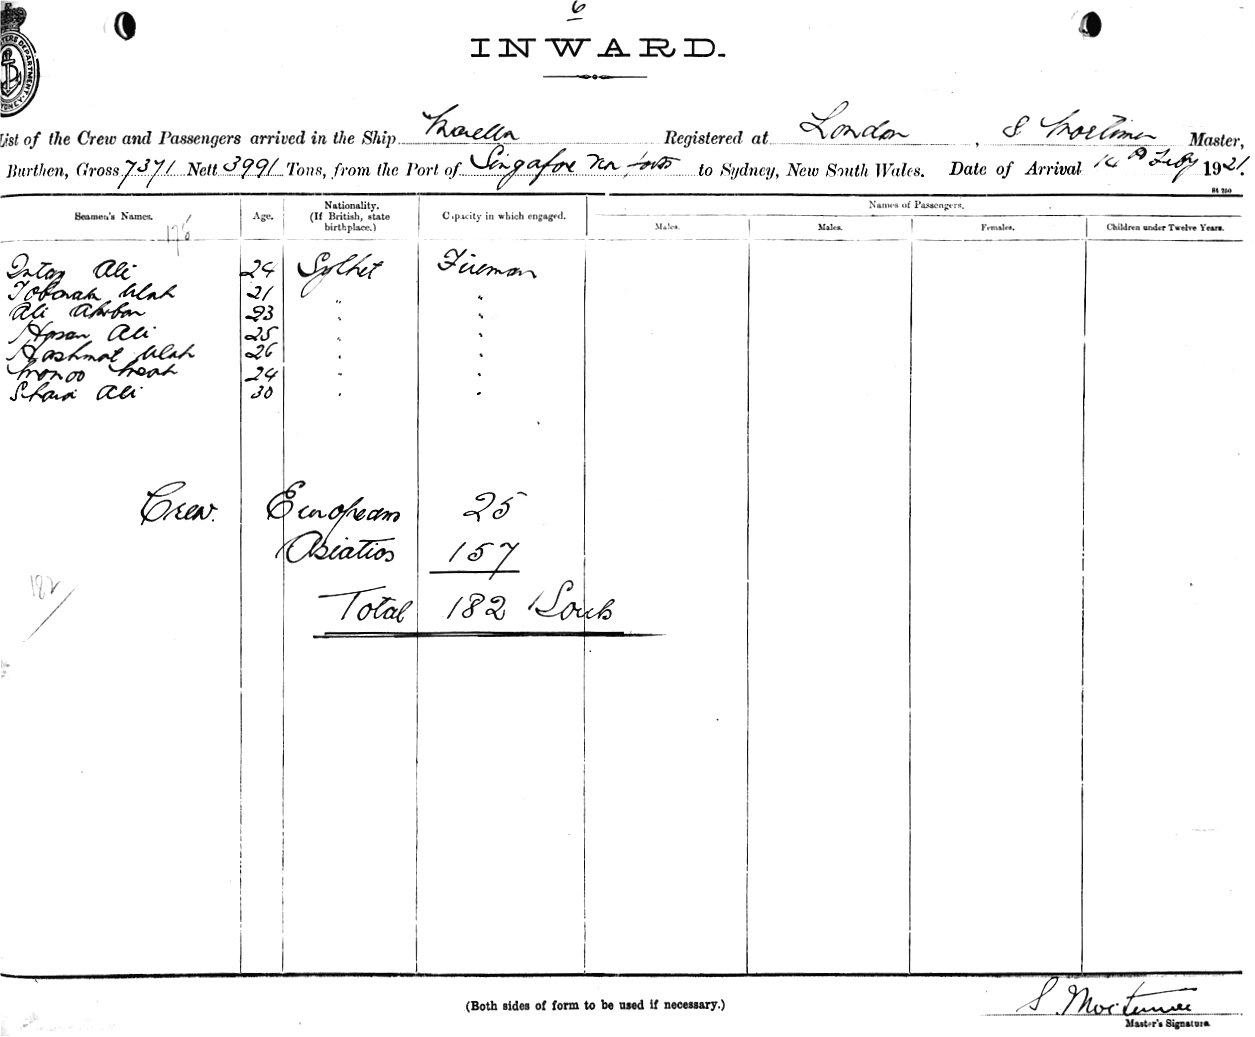 6
INWARD.
List of the Crew and Passengers arrived in the Ship Morella Registered at London, S Mortimer Master,
Burthen, Gross 7371 Nett 3991 Tons, from the Port of Singapore to Sydney, New South Wales. Date of Arrival 14th Feby 1921.
St 250
Names of Passengers.
Seamen's Names. Age. Nationality. (If British, state birthplace.) Capacity in which engaged. Males. Males. Females. Children under Twelve Years.
176
Ali 24 Sylhet Fireman
Tobarak Ulah 21 " "
Ali Akbar 23 " "
Hasan Ali 25 " "
Hashmat Ulah 26 " "
Monoo Meah 24 " "
Ali 30 " "
Crew. Europeans 25
Asiatics 157
Total 182 Souls
182
(Both sides of form to be used if necessary.)
S. Mortimer
Master's Signature.